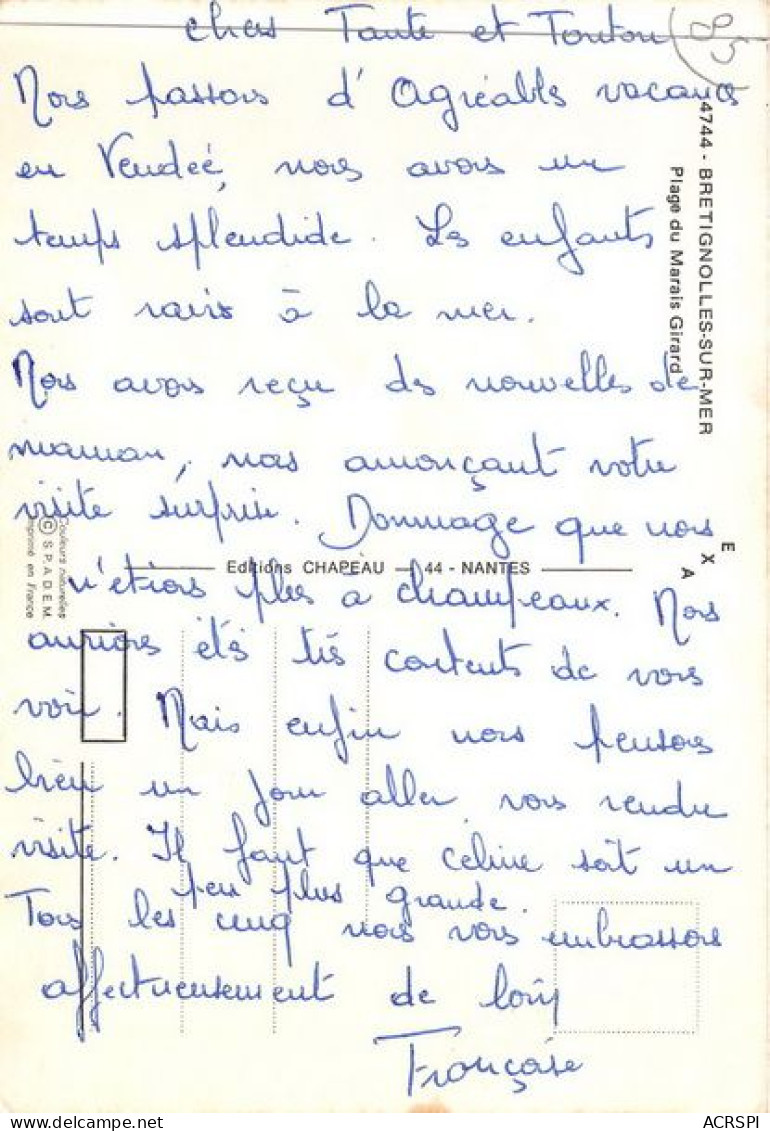 chers Tante et Tonton
85
Nous passons d'Agréables vacances
en Vendée, nous avons un
temps splendide. Les enfants
sont ravis à la mer.
Nous avons reçu des nouvelles de
maman, nous annonçant votre
visite surprise. Dommage que nous
n'étions plus à champeaux. Nous
aurions étés très contents de vous
voir. Mais enfin nous pensons
bien un jour aller vous rendre
visite. Il faut que celine soit un
peu plus grande.
Tous les cinq nous vous embrassons
affectueusement de loin
Françoise
4744 - BRETIGNOLLES-SUR-MER
Plage du Marais Girard
EXA
Editions CHAPEAU — 44 - NANTES
Couleurs naturelles
© S.P.A.D.E.M.
Imprimé en France
ACRSPI